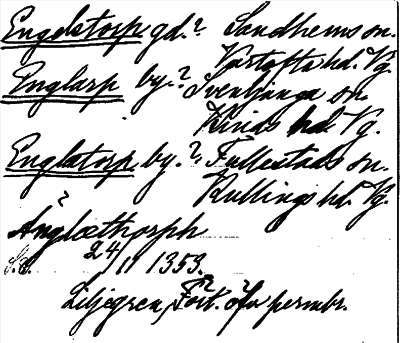 Engelstorp gd.? Sandhems sn.
Vartofta hd. Vg.
Englarp by.? Svenljunga sn.
Kinds hd. Vg.
Englatorp by.? Fullestads sn.
Kullings hd. Vg.
?
Ænglæthorph
24/11 1353.
Liljegren, Fört. öfv permbr.